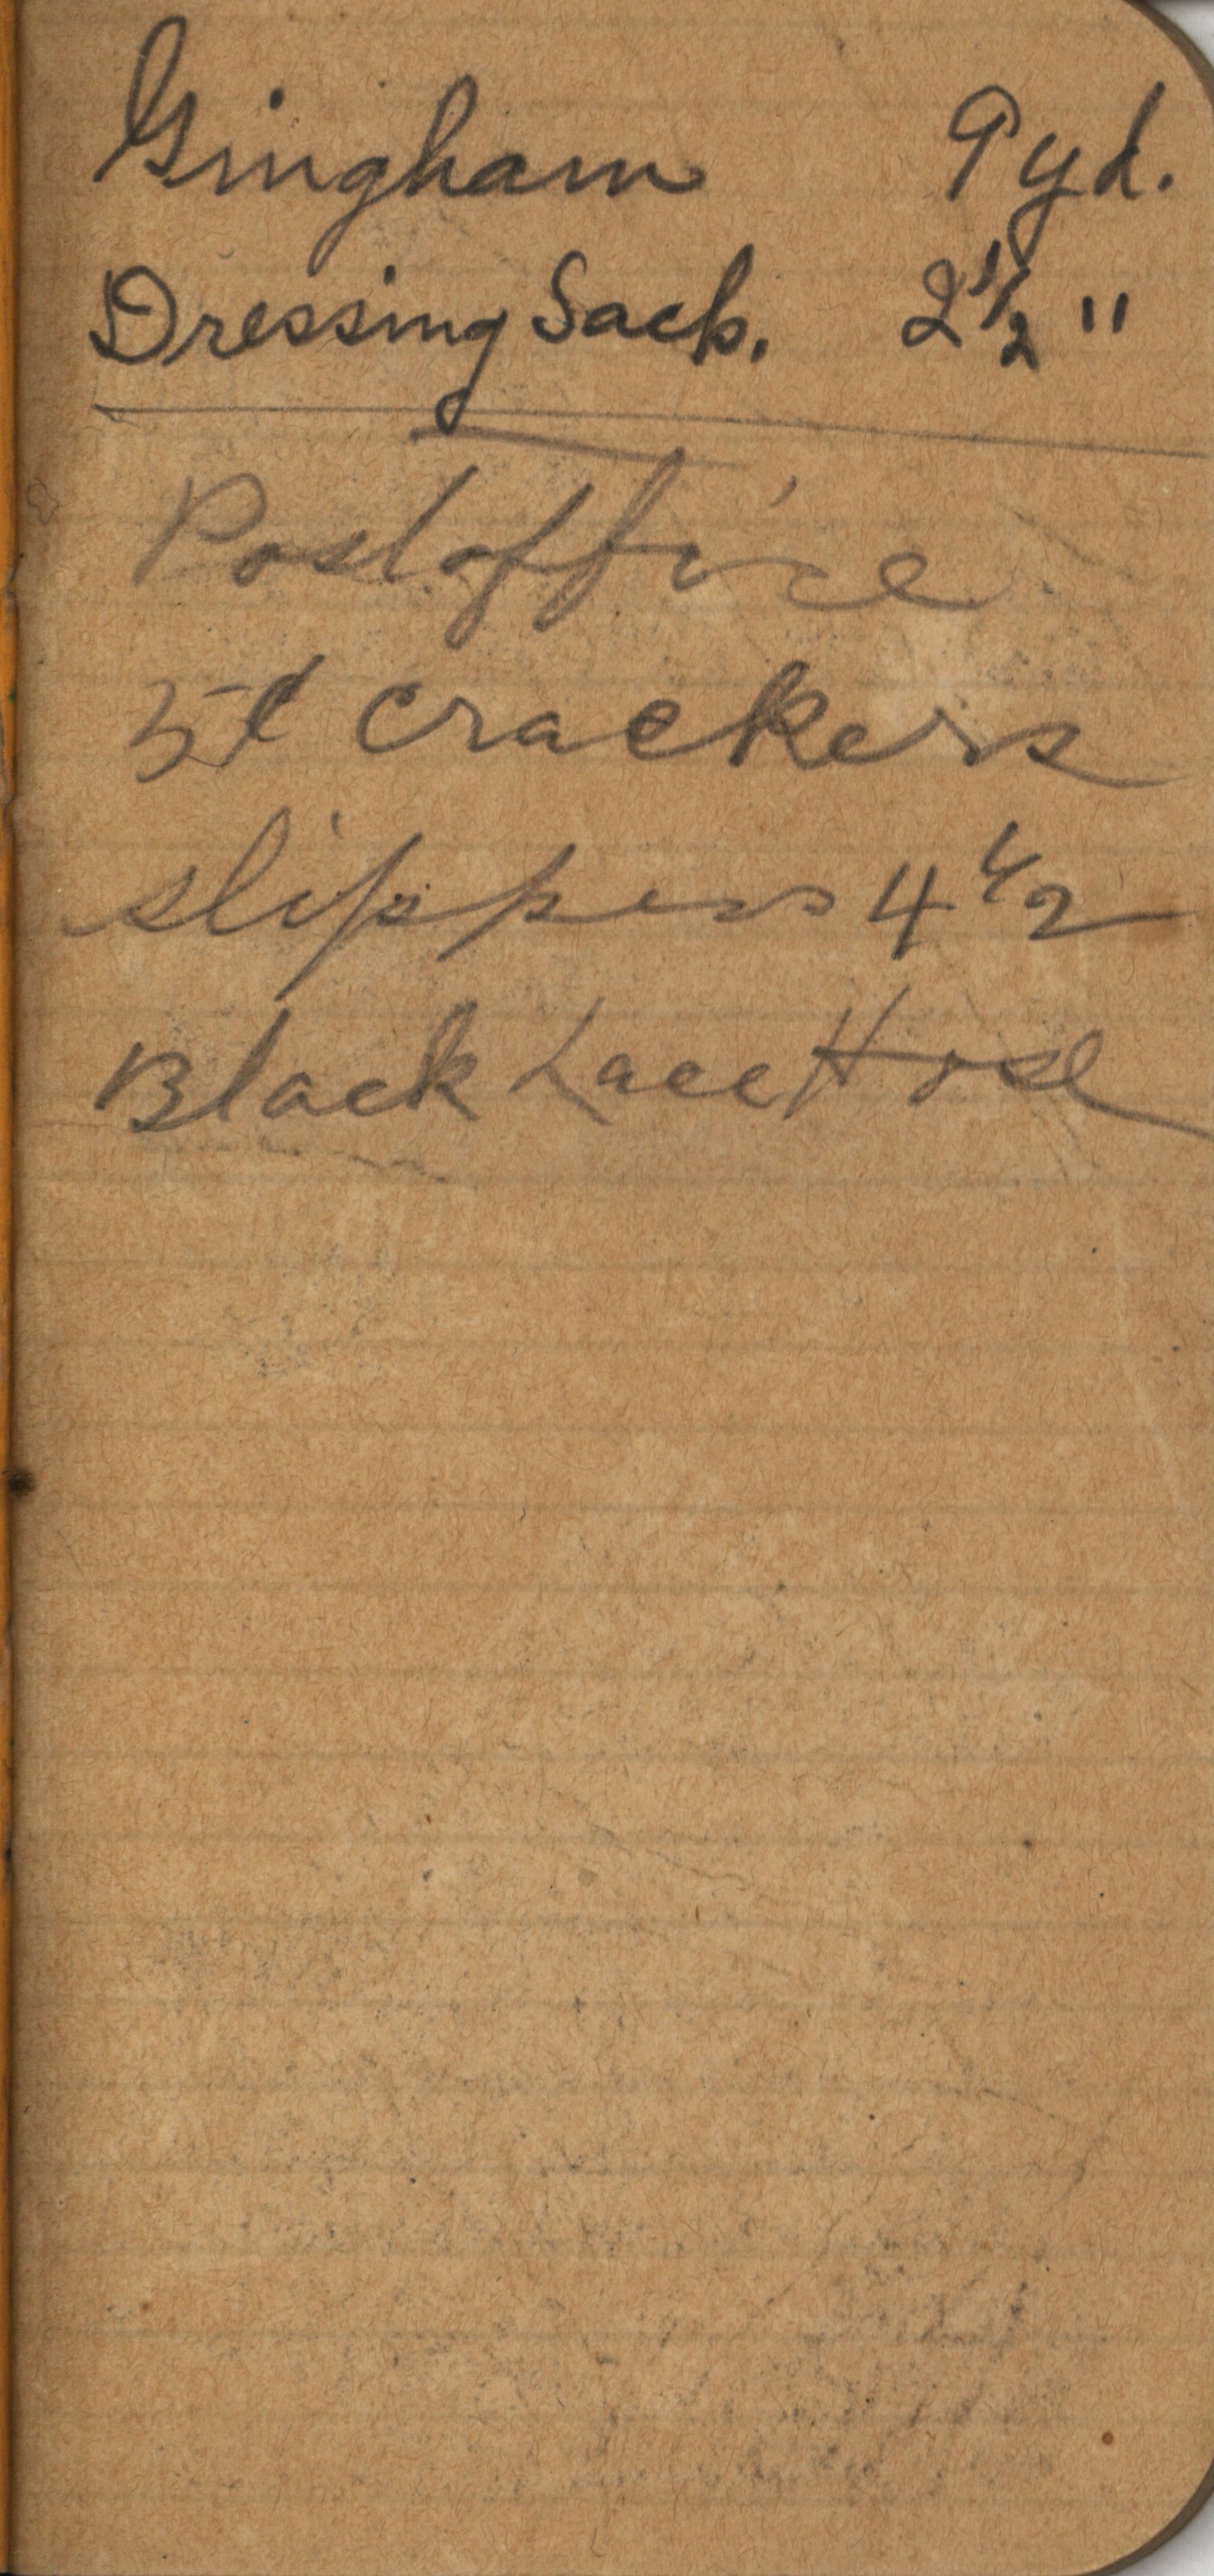 Gingham 9 yd.
Dressing Sack. 2 1/2 "
Postoffice
5¢ crackers
slippers 4 1/2
Black Lace Hose